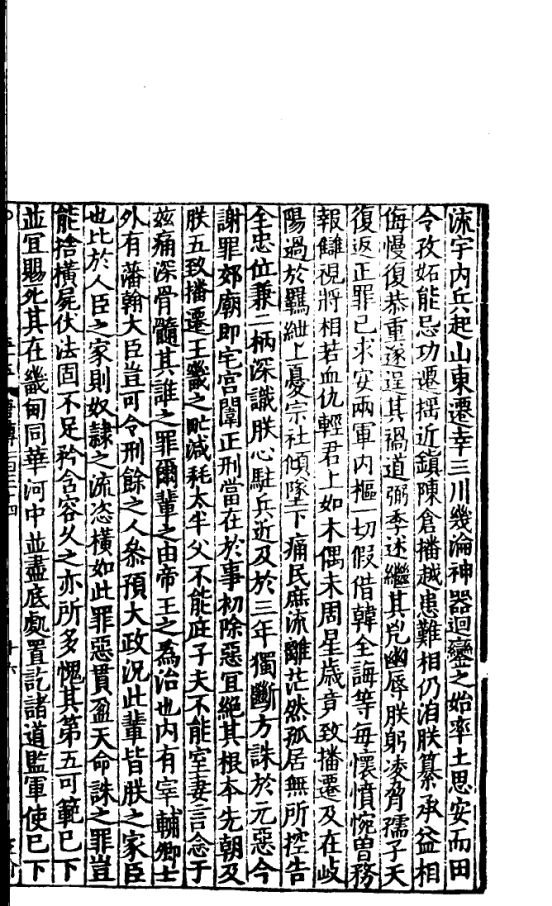 流宇内兵起山東遷幸三川幾淪神器迴鑾之始率土思安而田
令孜妬能忌功遷揺近鎮陳倉播越患難相仍洎朕纂承益相
侮慢復恭重遂逞其禍道弼季述繼其兇幽辱朕躬凌脅孺子天
復返正罪己求安兩軍内樞一切假借韓全誨等每懷憤惋曽務
報讎視將相若血仇輕君上如木偶未周星歲竟致播遷及在岐
陽過於羈紲上憂宗社傾墜下痛民庶流離茫然孤居無所控告
全忠位兼二柄深識朕心駐兵近及於三年獨斷方誅於元惡今
謝罪郊廟即宅宮闈正刑當在於事初除惡宜絕其根本先朝及
朕五致播遷王畿之甿減耗太半父不能庇子夫不能室妻言念于
茲痛深骨髓其誰之罪爾輩之由帝王之為治也内有宰輔卿士
外有藩翰大臣豈可令刑餘之人叅預大政況此輩皆朕之家臣
也比於人臣之家則奴隷之流恣橫如此罪惡貫盈天命誅之罪豈
能捨橫屍伏法固不足矜含容久之亦所多愧其第五可範已下
並宜賜死其在畿甸同華河中並盡底處置訖諸道監軍使已下